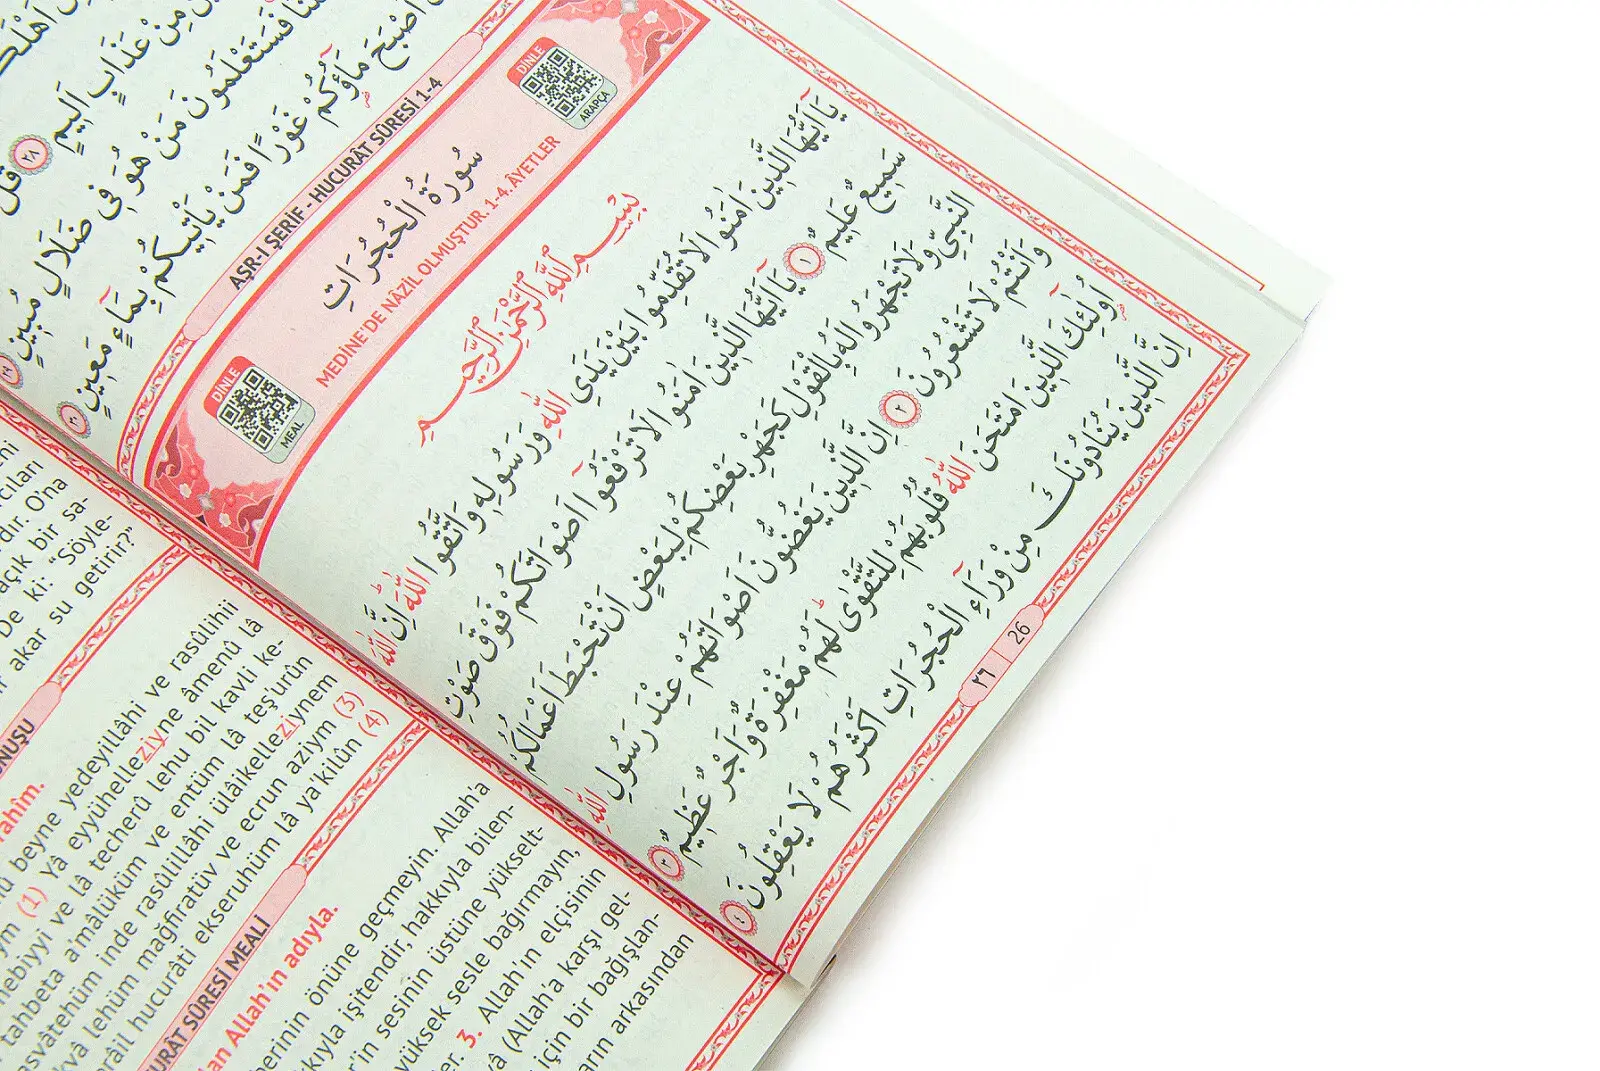 اَهْلَكَ
مِنْ عَذَابٍ اَل۪يمٍ ﴿٢٨﴾ قُلْ
فَسَتَعْلَمُونَ مَنْ هُوَ ف۪ي ضَلَالٍ مُب۪ينٍ ﴿٢٩﴾
اَصْبَحَ مَٓاؤُ۬كُمْ غَوْرًا فَمَنْ يَأْت۪يكُمْ بِمَٓاءٍ مَع۪ينٍ ﴿٣٠﴾
AŞR-I ŞERİF - HUCURÂT SÛRESİ 1-4
DİNLE
ARAPÇA
سُورَةُ الْحُجُرَاتِ
MEDİNE'DE NÂZİL OLMUŞTUR. 1-4. ÂYETLER
DİNLE
MEAL
بِسْمِ اللّٰهِ الرَّحْمٰنِ الرَّح۪يمِ
يَٓا اَيُّهَا الَّذ۪ينَ اٰمَنُوا لَا تُقَدِّمُوا بَيْنَ يَدَيِ اللّٰهِ وَرَسُولِه۪ وَاتَّقُوا اللّٰهَۜ اِنَّ اللّٰهَ
سَم۪يعٌ عَل۪يمٌ ﴿١﴾ يَٓا اَيُّهَا الَّذ۪ينَ اٰمَنُوا لَا تَرْفَعُٓوا اَصْوَاتَكُمْ فَوْقَ صَوْتِ
النَّبِيِّ وَلَا تَجْهَرُوا لَهُ بِالْقَوْلِ كَجَهْرِ بَعْضِكُمْ لِبَعْضٍ اَنْ تَحْبَطَ اَعْمَالُكُمْ
وَاَنْتُمْ لَا تَشْعُرُونَ ﴿٢﴾ اِنَّ الَّذ۪ينَ يَغُضُّونَ اَصْوَاتَهُمْ عِنْدَ رَسُولِ اللّٰهِ
اُو۬لٰٓئِكَ الَّذ۪ينَ امْتَحَنَ اللّٰهُ قُلُوبَهُمْ لِلتَّقْوٰىۜ لَهُمْ مَغْفِرَةٌ وَاَجْرٌ عَظ۪يمٌ ﴿٣﴾
اِنَّ الَّذ۪ينَ يُنَادُونَكَ مِنْ وَرَٓاءِ الْحُجُرَاتِ اَكْثَرُهُمْ لَا يَعْقِلُونَ ﴿٤﴾
٢٦ | 26
cıları
dır. O'na
açık bir sa-
De ki: "Söyle-
akar su getirir?"
beyne yedeyillâhi ve rasûlihii
(1) Yâ eyyühelleziyne âmenû lâ
nebiyyi ve lâ techerû lehu bil kavli ke-
tahbeta a'mâlüküm ve entüm lâ teş'urûn
asvâtehüm inde rasûlillâhi ülâikelleziynem
lehüm mağfiratüv ve ecrun aziym (3)
hucurâti ekseruhüm lâ ya'kilûn (4)
SÛRESİ MEALİ
Allah'ın adıyla.
önüne geçmeyin. Allah'a
işitendir, hakkıyla bilen-
sesinin üstüne yükselt-
yüksek sesle bağırmayın,
3. Allah'ın elçisinin
(Allah'a karşı gel-
için bir bağışlan-
arkasından